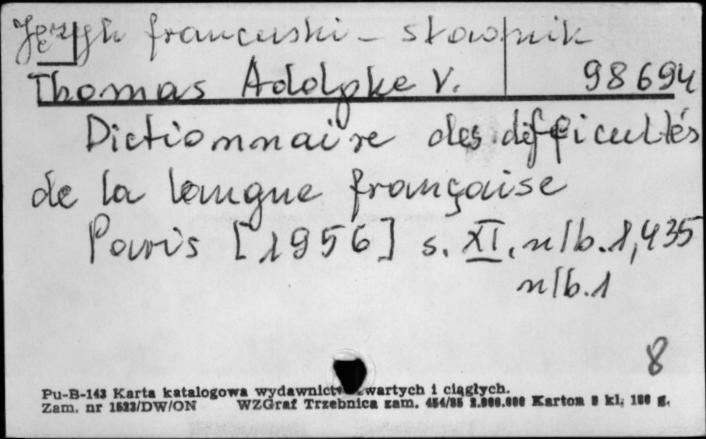 Język francuski - słownik
Thomas Adolphe V. 98694
Dictionnaire des difficultés
de la langue française
Paris [1956] s. XI, nlb. 1, 435
nlb. 1
8
Pu-B-143 Karta katalogowa wydawnictw zwartych i ciągłych.
Zam. nr 1523/DW/ON WZGraf Trzebnica zam. 454/85 2.000.000 Karton 8 kl. 180 g.